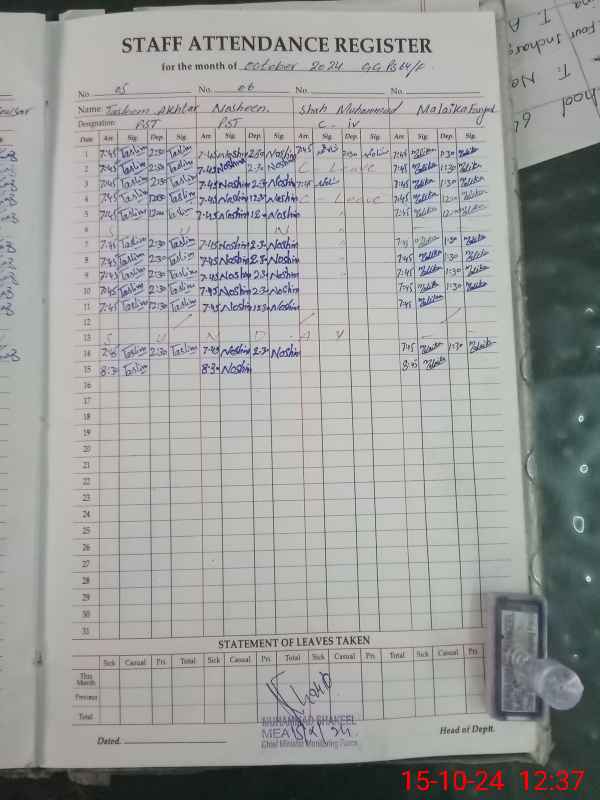 STAFF ATTENDANCE REGISTER
for the month of October 2024
No. 05 No. 06 No. No.
Name: Tasleem Akhtar Nosheen Shah Muhammad Malaika
Designation: PST PST C. iv
Date Arr. Sig. Dep. Sig. Arr. Sig. Dep. Sig. Arr. Sig. Dep. Sig. Arr. Sig. Dep. Sig.
1 7:45 Taslim 2:30 Taslim 7:45 Noshin 2:30 Noshin 7:45 2:30 7:45 Malaika 1:30 Malaika
2 7:45 Taslim 2:30 Taslim 7:45 Noshin 2:30 Noshin C Leave 7:45 Malaika 1:30 Malaika
3 7:45 Taslim 2:30 Taslim 7:45 Noshin 2:30 Noshin 7:45 7:45 Malaika 1:30 Malaika
4 7:45 Taslim 12:00 Taslim 7:45 Noshin 12:30 Noshin C Leave 7:45 Malaika 12:00 Malaika
5 7:45 Taslim 12:00 Taslim 7:45 Noshin 12:30 Noshin " 7:45 Malaika 12:00 Malaika
6 S U N "
7 7:45 Taslim 2:30 Taslim 7:45 Noshin 2:30 Noshin " 7:45 Malaika 1:30 Malaika
8 7:45 Taslim 2:30 Taslim 7:45 Noshin 2:30 Noshin " 7:45 Malaika 1:30 Malaika
9 7:45 Taslim 2:30 Taslim 7:45 Noshin 2:30 Noshin " 7:45 Malaika 1:30 Malaika
10 7:45 Taslim 2:30 Taslim 7:45 Noshin 2:30 Noshin 7:45 Malaika 1:30 Malaika
11 7:45 Taslim 12:30 Taslim 7:45 Noshin 12:30 Noshin 7:45 Malaika
12
13 S U N D A Y
14 7:45 Taslim 2:30 Taslim 7:45 Noshin 2:30 Noshin 7:45 Malaika 1:30 Malaika
15 8:30 Taslim 8:30 Noshin 8:45 Malaika
16
17
18
19
20
21
22
23
24
25
26
27
28
29
30
31
STATEMENT OF LEAVES TAKEN
Sick Casual Pri. Total Sick Casual Pri. Total Sick Casual Pri. Total Sick Casual Pri. Total
This Month
Previous
Total
MUHAMMAD SHAKEEL
MEA
Chief Minister Monitoring Force
Dated. Head of Deptt.
15-10-24 12:37